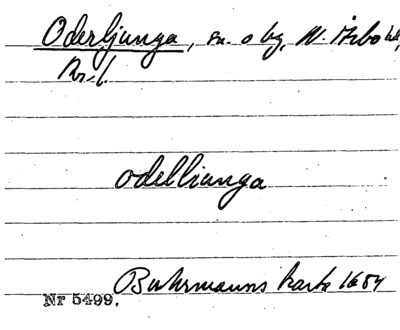 Oderljunga, sn. o by, N. Åsbo hd,
Kr. l.
odellianga
Buhrmanns karta 1684
Nr 5499.